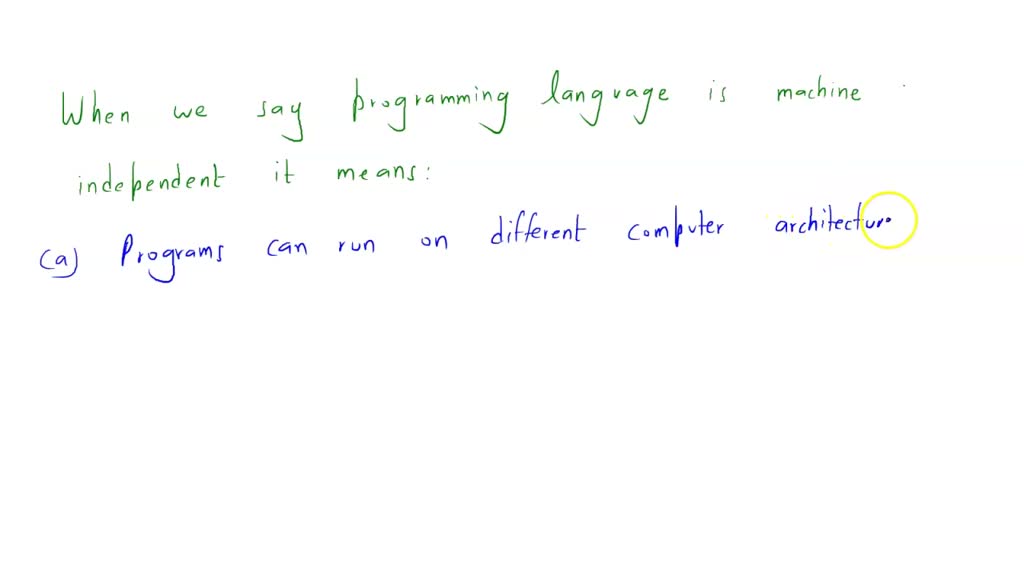 When we say programming language is machine
independent it means:
(a) Programs can run on different computer architectur